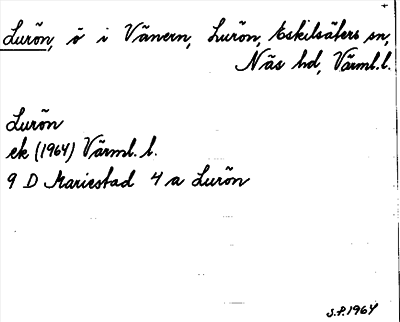 Lurön, ö i Vänern, Lurön, Eskilsäters sn,
Näs hd, Värml. l.
Lurön
ek (1964) Värml. l.
9 D Mariestad 4 a Lurön
S.P. 1964